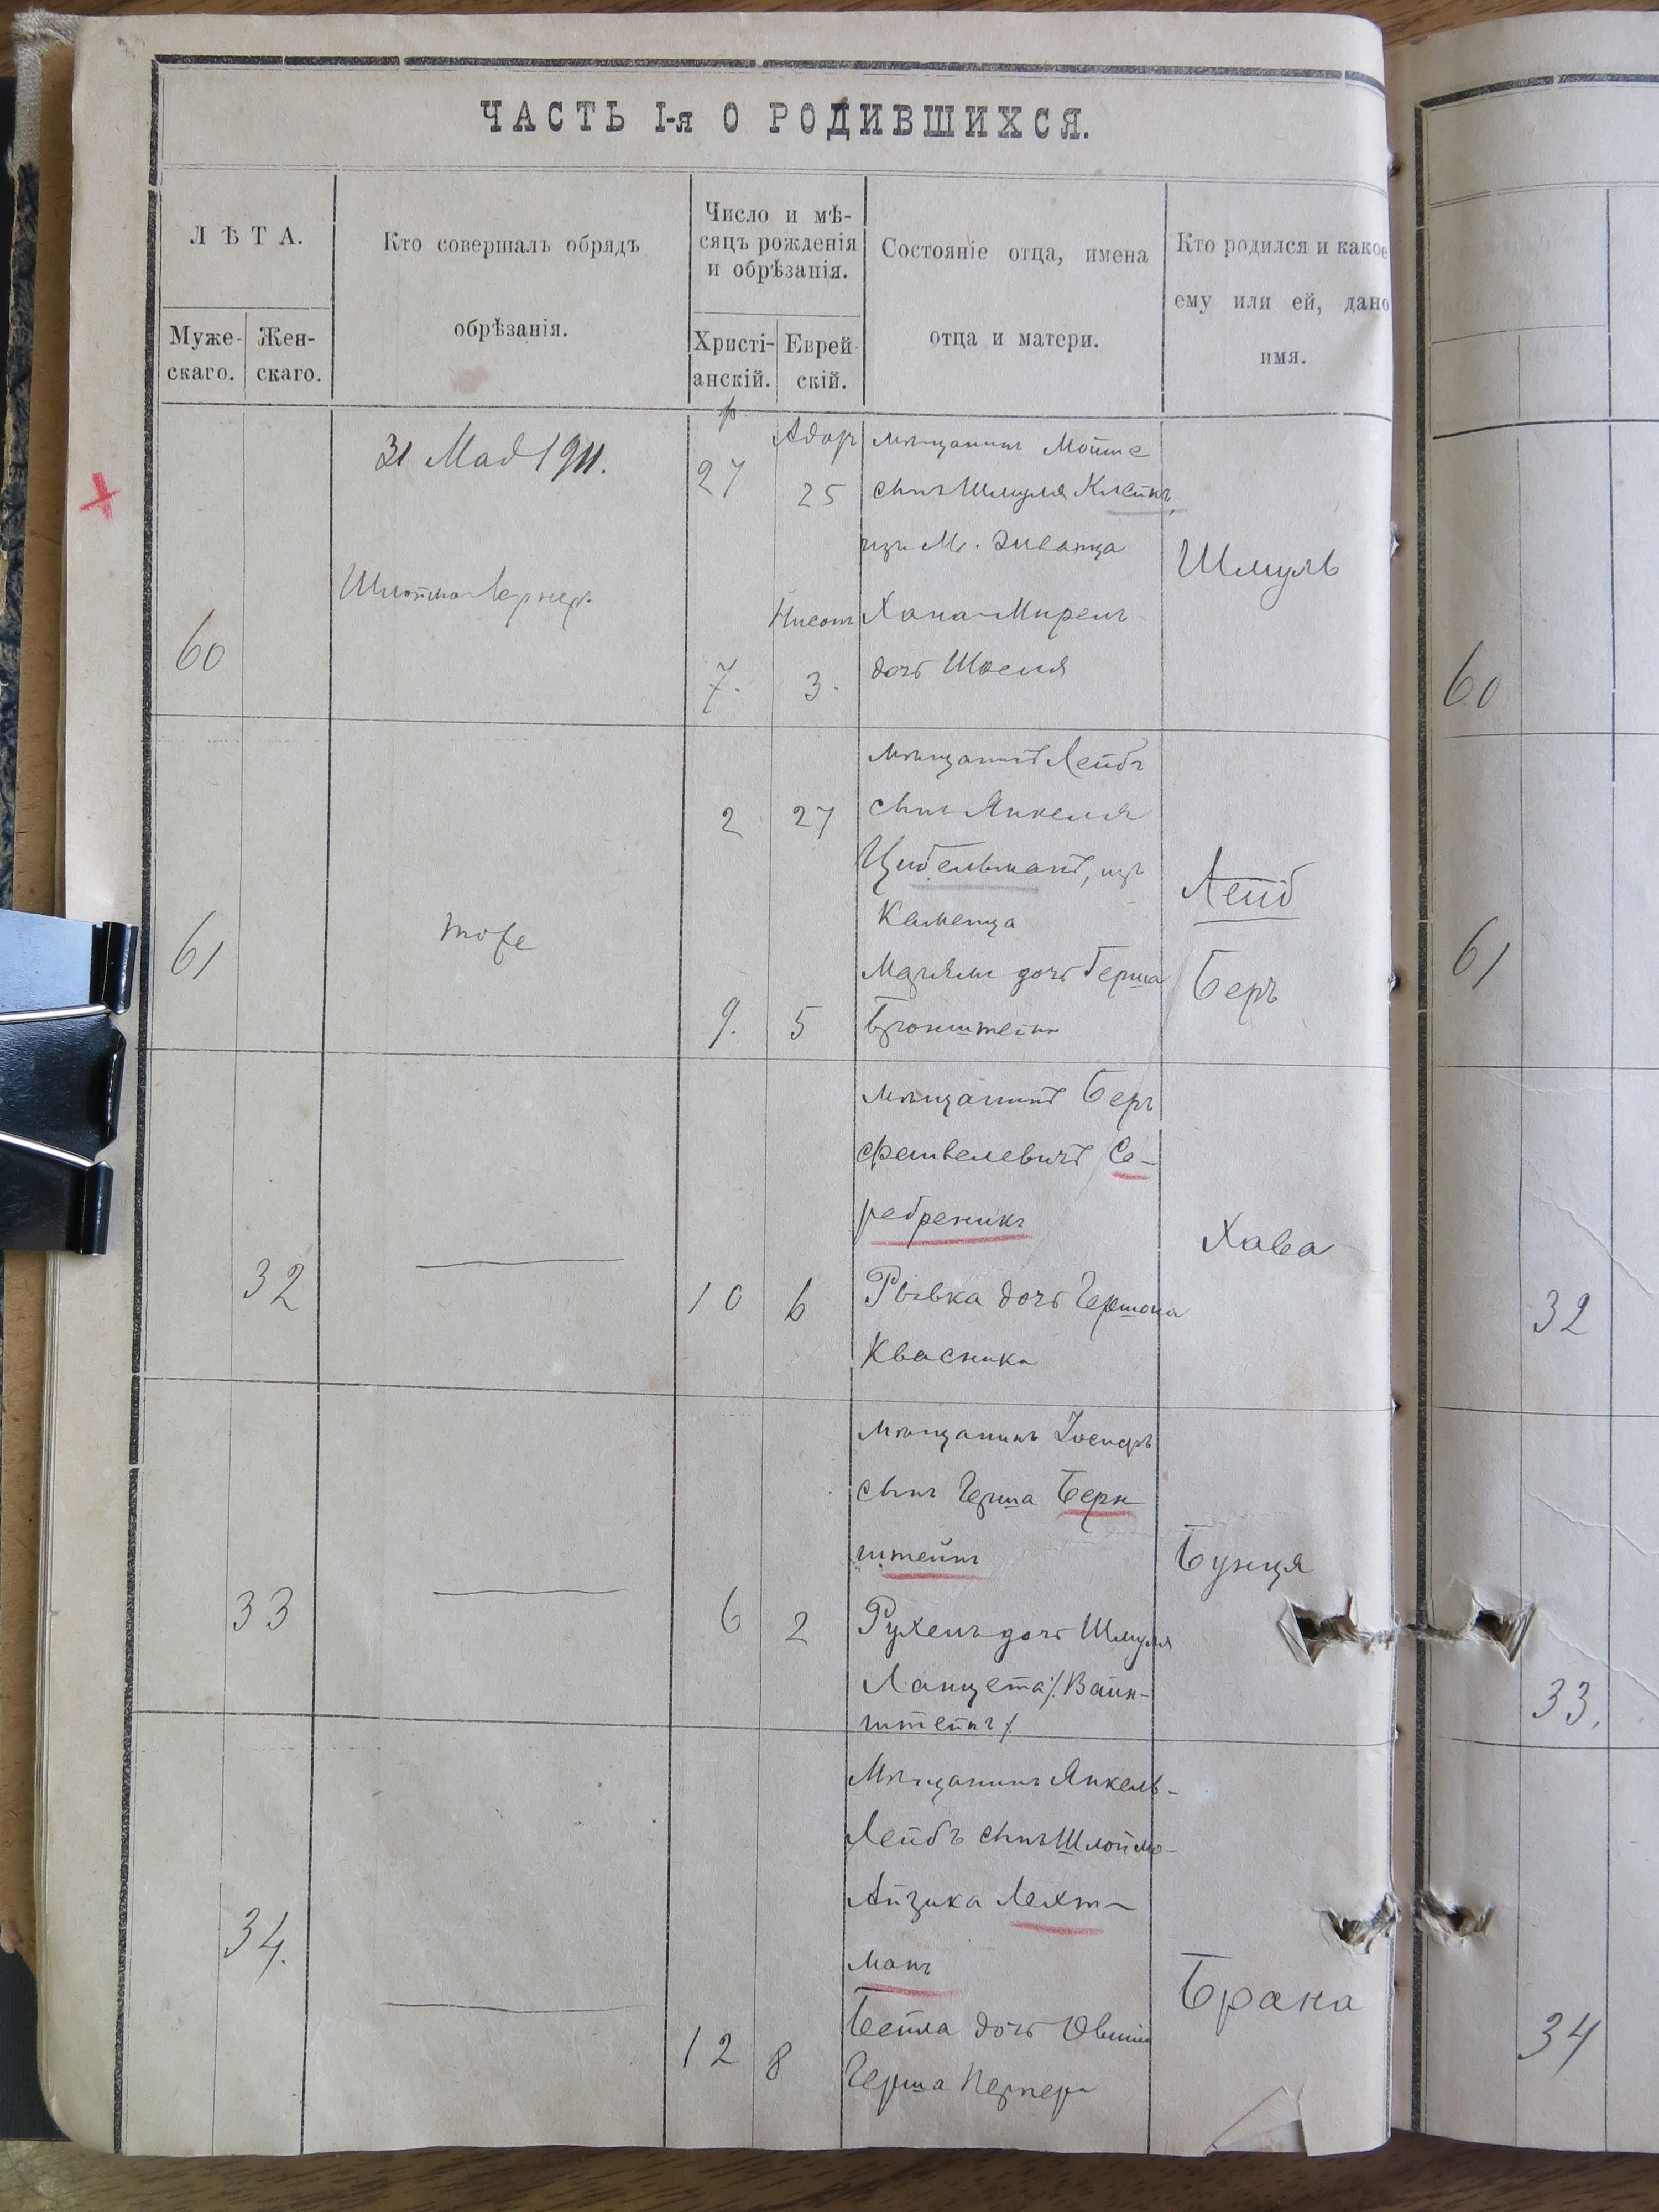 ЧАСТЬ I-я О РОДИВШИХСЯ.
ЛѢТА.
Муже-
скаго.
Жен-
скаго.
Кто совершалъ обрядъ
обрѣзанія.
Число и мѣ-
сяцъ рожденія
и обрѣзанія.
Христі-
анскій.
Еврей
скій.
Состояніе отца, имена
отца и матери.
Кто родился и какое
ему или ей, дано
имя.
60
31 Мая 1911.
Шлойма Лернеръ
27
7.
Адаръ
25
Нисонъ
3.
мѣщанинъ Мойше
сынъ Шмуля Клейнъ,
изъ М.
Хана-Мирель
дочь
Шмуль
60
61
тоже
2
9.
27
5
мѣщанинъ Лейбъ
сынъ Янкеля
Цибельманъ, изъ
Каменца
дочь Герша
Бронштейнъ
Лейб
Беръ
61
32
10
6
мѣщанинъ Беръ
Файвелевичъ Се-
ребреникъ
Рывка дочь Гершона
Квасника
Хава
32
33
6
2
мѣщанинъ Іосифъ
сынъ Герша Берн
штейнъ
Рухель дочь Шмуля
Ланцета /Вайн-
штейнъ/
Бунця
33.
34.
12
8
Мѣщанинъ Янкель-
Лейбъ сынъ Шлоймо-
Айзика Лехт-
манъ
Бейла дочь
Герша
Брана
34